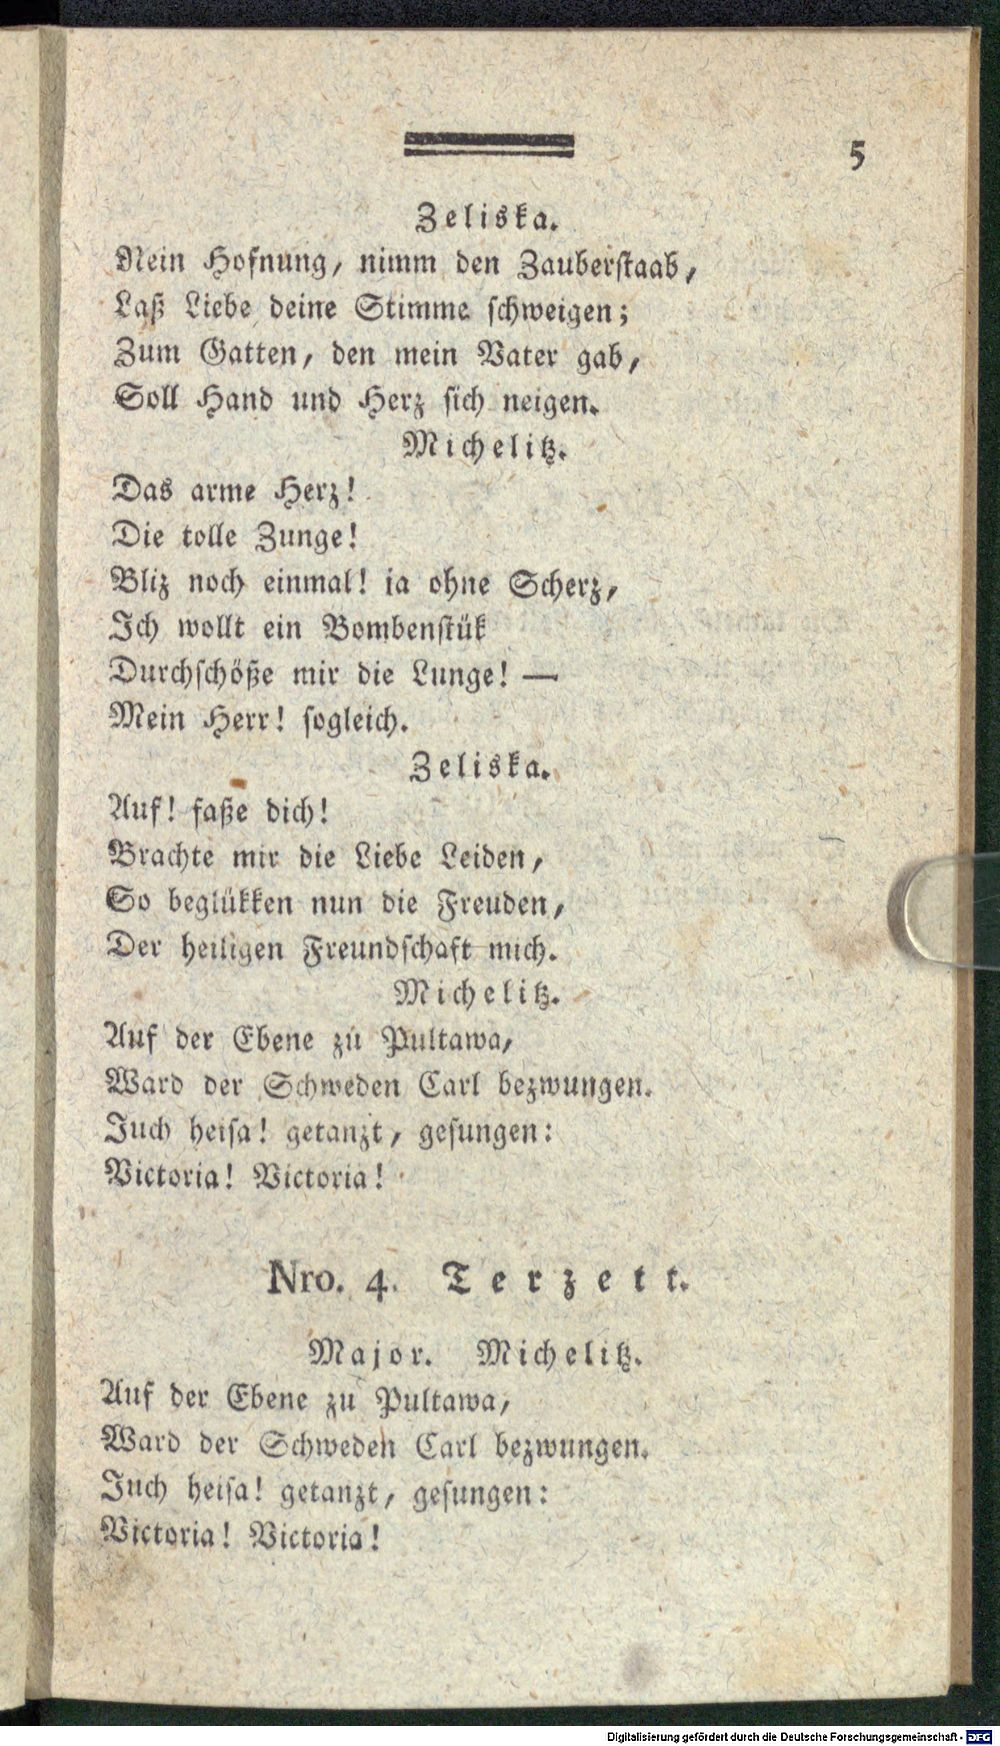 5
Zeliska.
Nein Hofnung, nimm den Zauberstaab,
Laß Liebe deine Stimme schweigen;
Zum Gatten, den mein Vater gab,
Soll Hand und Herz sich neigen.
Michelitz.
Das arme Herz!
Die tolle Zunge!
Bliz noch einmal! ia ohne Scherz,
Ich wollt ein Bombenstük
Durchschöße mir die Lunge! —
Mein Herr! sogleich.
Zeliska.
Auf! faße dich!
Brachte mir die Liebe Leiden,
So beglükken nun die Freuden,
Der heiligen Freundschaft mich.
Michelitz.
Auf der Ebene zu Pultawa,
Ward der Schweden Carl bezwungen.
Juch heisa! getanzt, gesungen:
Victoria! Victoria!
Nro. 4. Terzett.
Major. Michelitz.
Auf der Ebene zu Pultawa,
Ward der Schweden Carl bezwungen.
Juch heisa! getanzt, gesungen:
Victoria! Victoria!
Digitalisierung gefördert durch die Deutsche Forschungsgemeinschaft - DFG